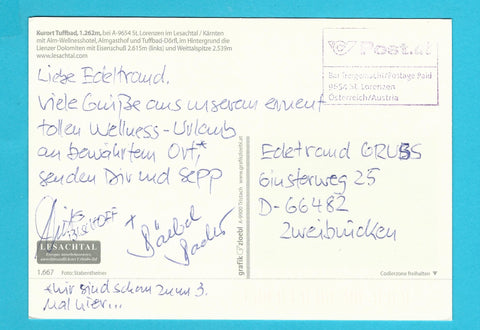 Kurort Tuffbad, 1.262m, bei A-9654 St. Lorenzen im Lesachtal / Kärnten
mit Alm-Wellnesshotel, Almgasthof und Tuffbad-Dörfl, im Hintergrund die
Lienzer Dolomiten mit Eisenschuß 2.615m (links) und Weittalspitze 2.539m
www.lesachtal.com
Post.at
Bar freigemacht/Postage Paid
9654 St. Lorenzen
Österreich/Austria
Liebe Edeltraud.
Viele Grüße aus unserem erneut
tollen Wellness-Urlaub
an bewährtem Ort*,
senden Dir und Sepp
+ Bärbel
LESACHTAL
1,667 Foto: Stabentheiner
*wir sind schon zum 3.
Mal hier...
grafik zloebl
A-9900 Tristach
Edeltraud GRUBS
Ginsterweg 25
D-66482
Zweibrücken
Codierzone freihalten ▼